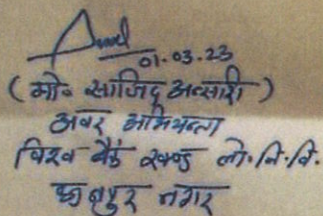 01.03.23
(मो० साजिद अन्सारी)
अवर अभियन्ता
विश्व बैंक खण्ड लो.नि.वि.
कानपुर नगर